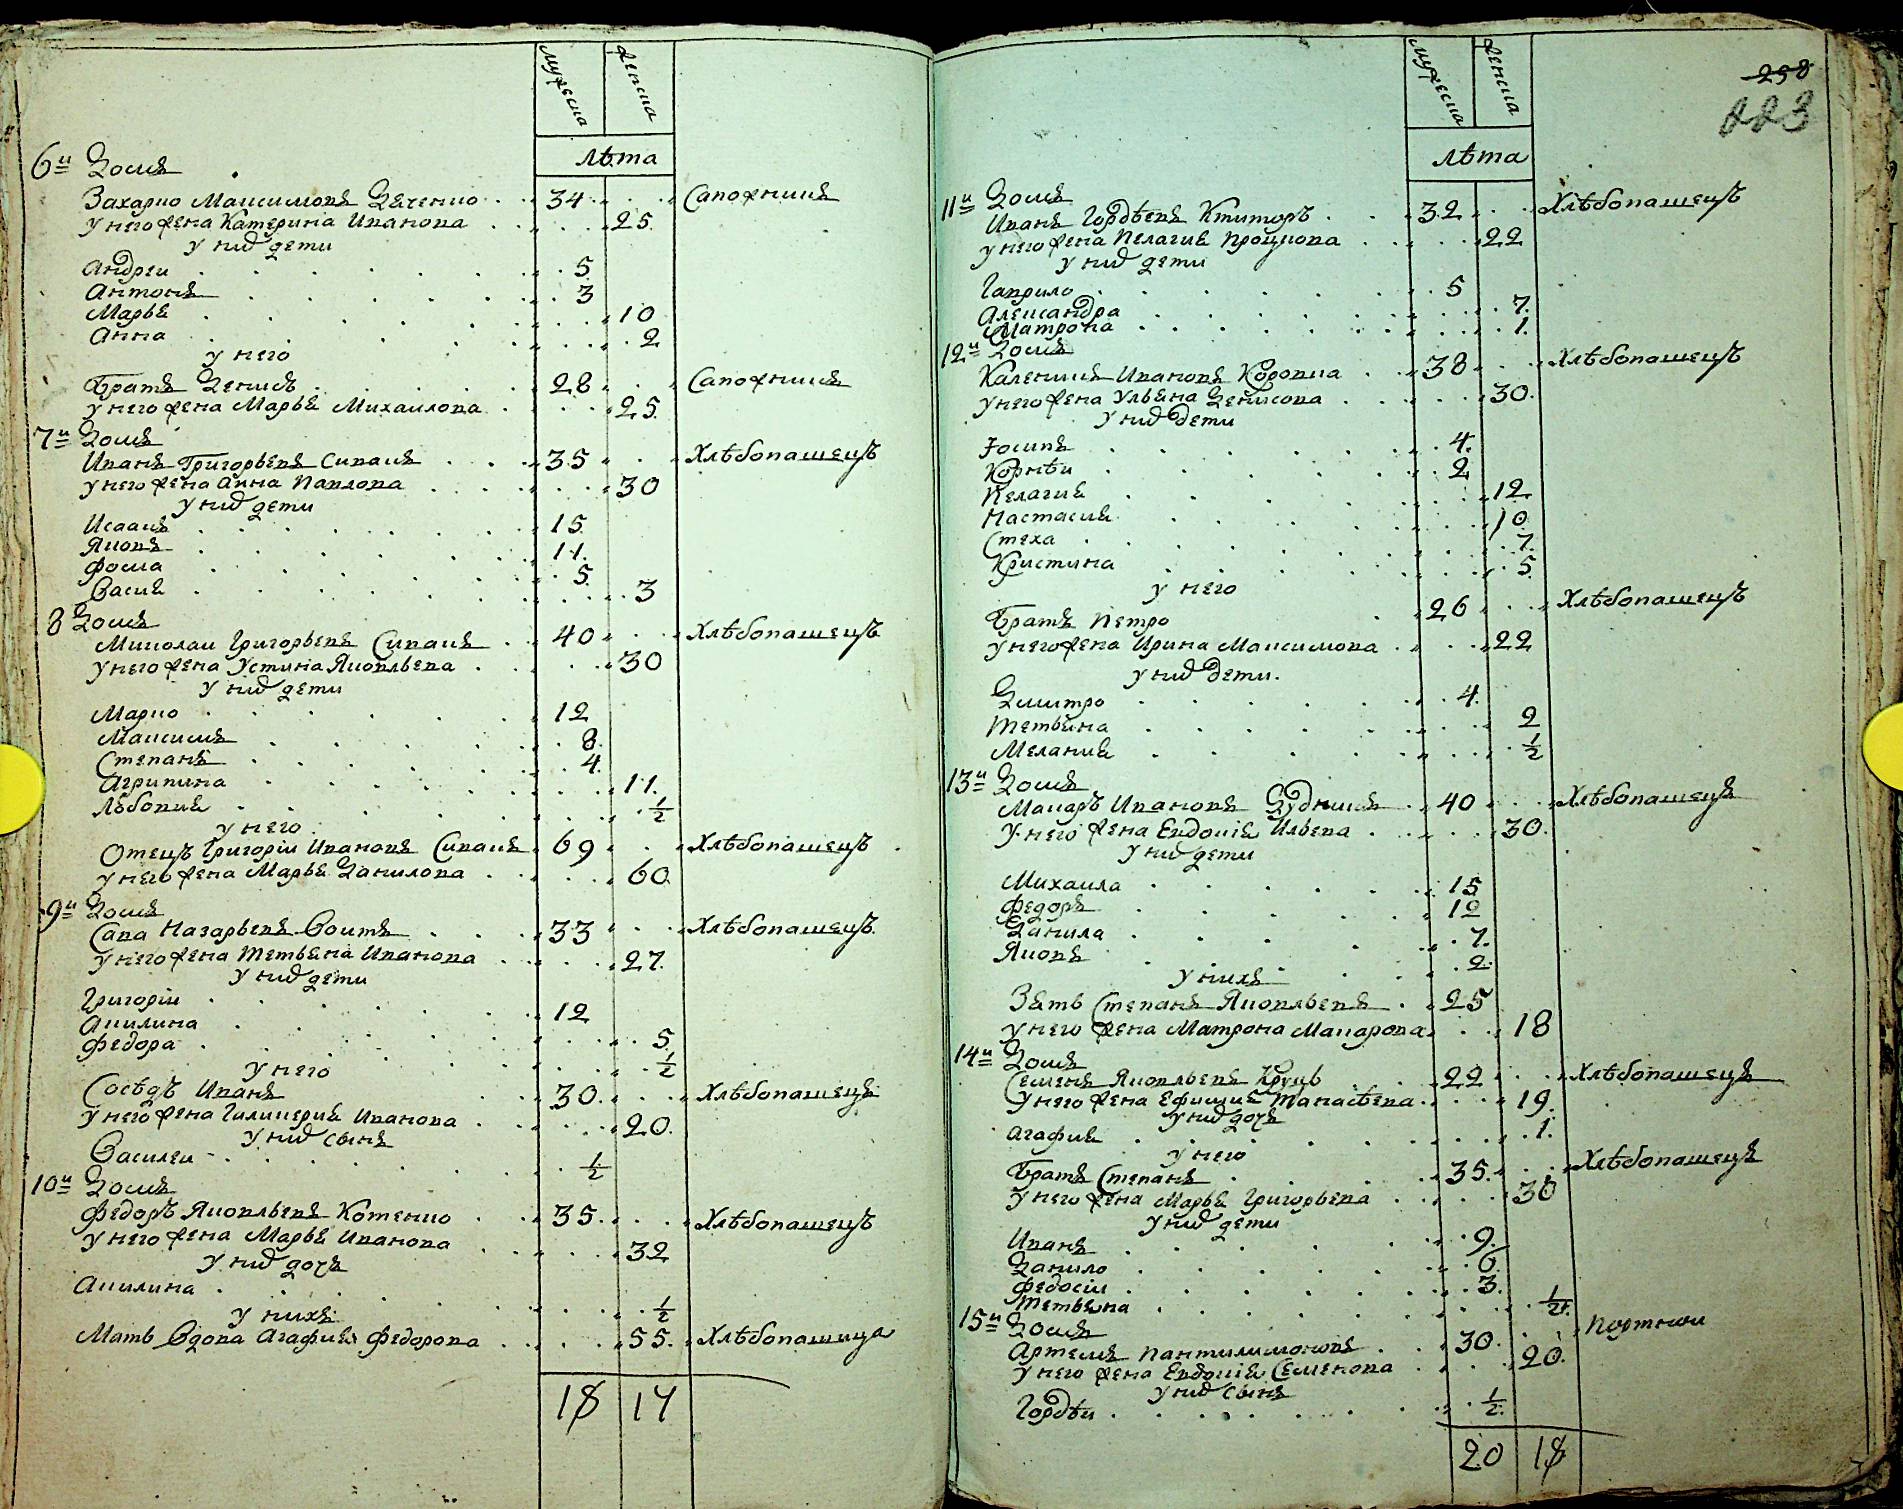 мужеска женска
лѣта
6й Домъ
Захарко Максимовъ Деченко 34 Сапожникъ
у него жена Катерина Иванова 25
у них дети
Андреи 5
Антонъ 3
Марья 10
Анна 2
у него
братъ Денисъ 28 Сапожникъ
у него жена Марья Михаилова 25
7й Домъ
Иванъ Григорьевъ Сивакъ 35 Хлѣбопашецъ
у него жена Анна Павлова 30
у них дети
Исаакъ 15
Яковъ 11
Фома 5
Васия 3
8 Домъ
Миколаи Григорьевъ Сивакъ 40 Хлѣбопашецъ
у него жена Устина Яковльева 30
у них дети
Марко 12
Максимъ 8
Степанъ 4
Агрипина 11
Любовия 1/2
у него
Отецъ Григоріи Ивановъ Сивакъ 69 Хлѣбопашецъ
у него жена Марья Данилова 60
9й Домъ
Сава Назарьевъ Воитъ 33 Хлѣбопашецъ
у него жена Тетьяна Иванова 27
у них дети
Григоріи 12
Акилина 5
Федора 1/2
у него
Сосѣдъ Иванъ 30 Хлѣбопашецъ
у него жена Галикерия Иванова 20
у них сынъ
Василеи 1/2
10й Домъ
Федоръ Яковльевъ Котенко 35 Хлѣбопашецъ
у него жена Марья Иванова 32
у них дочъ
Акилина 1/2
у нихъ
Мать Вдова Агафия Федорова 55 Хлѣбопашица
18 17
258
223
мужеска женска
лѣта
11й Домъ
Иванъ Гордѣевъ Ктиторъ 32 Хлѣбопашецъ
у него жена Пелагия Процкова 22
у них дети
Гаврило 5
Александра 7
Матрона 1
12й Домъ
Каленикъ Ивановъ Коровка 38 Хлѣбопашецъ
у него жена Ульяна Денисова 30
у них дети
Іосипъ 4
Корнѣи 2
Пелагия 12
Настасия 10
Стеха 7
Кристина 5
у него
братъ Петро 26 Хлѣбопашецъ
у него жена Ирина Максимова 22
у них дети
Дмитро 4
Тетьяна 2
Мелания 1/2
13й Домъ
Макаръ Ивановъ Судникъ 40 Хлѣбопашецъ
у него жена Евдокія Ильева 30
у них дети
Михаила 15
Федоръ 12
Данила 7
Яковъ 2
у нихъ
Зять Степанъ Яковльевъ 25
у него жена Матрона Макарова 18
14й Домъ
Семенъ Яковльевъ Круць 22 Хлѣбопашецъ
у него жена Ефимия Танасѣева 19
у них дочъ
Агафия 1
у него
братъ Степанъ 35 Хлѣбопашецъ
у него жена Марья Григорьева 30
у них дети
Иванъ 9
Данило 6
Федосіи 3
Тетьяна 1/2
15й Домъ
Артемъ Пантилимоновъ 30 Портнои
у него жена Евдокія Семенова 20
у них сынъ
Гордѣи 1/2
20 18